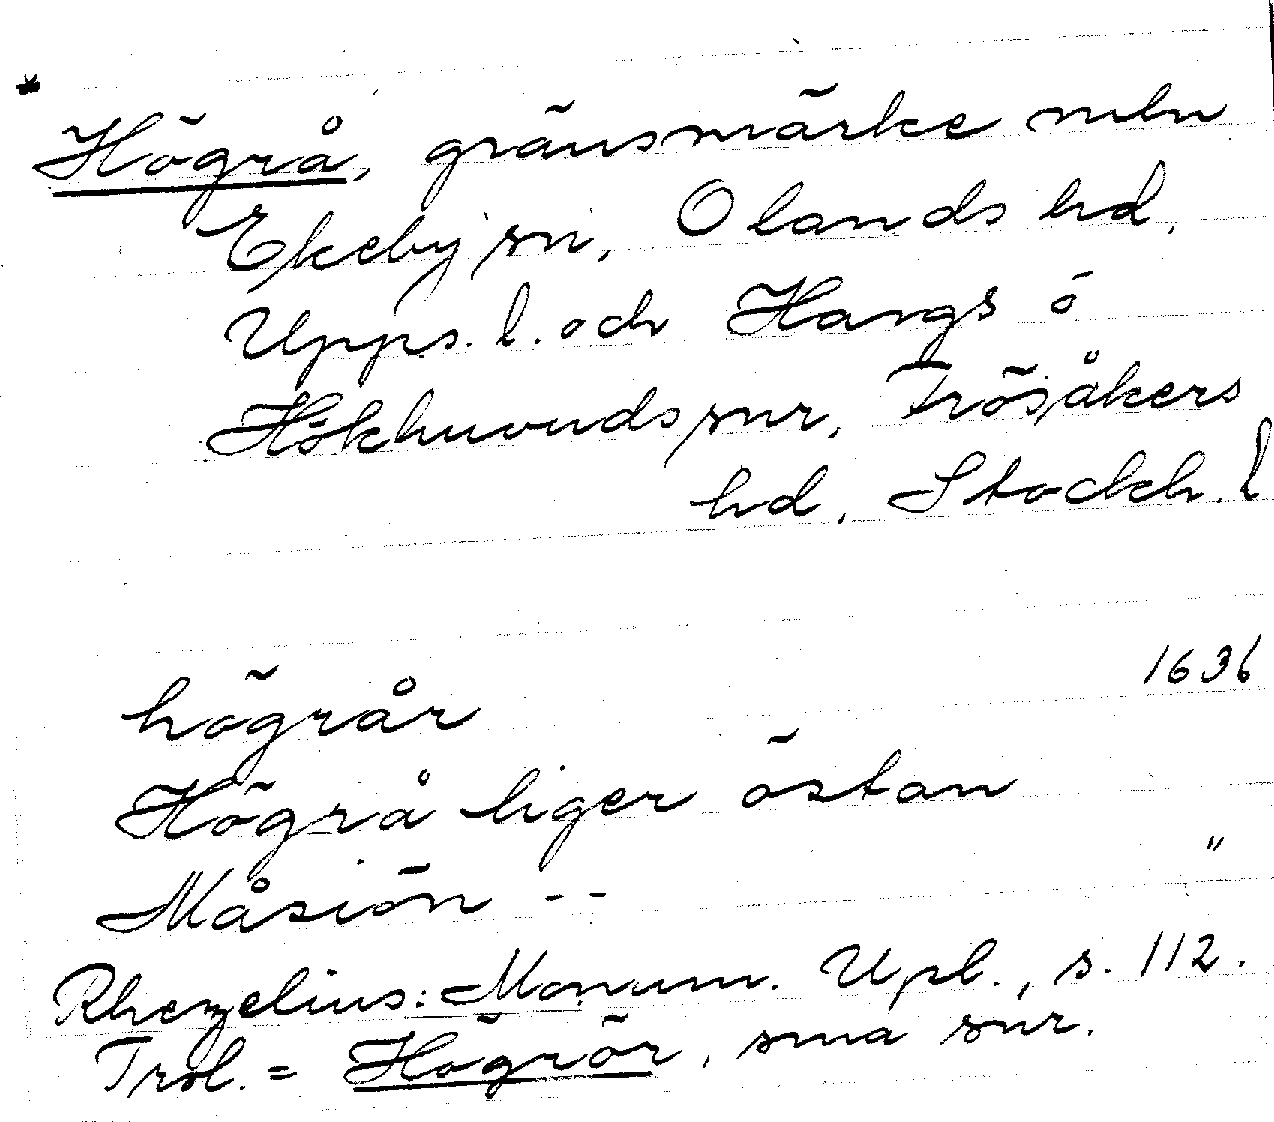 *
Högrå, gränsmärke mln
Ekeby sn, Olands hd,
Upps. l. och Hargs o
Hökhuvuds snr, Frösåkers
hd, Stockh. l
1636
högrår
Högrå liger östan
Måsiön -- "
Rhezelius: Monum. Upl., s. 112.
Trol. = Högrör, sma snr.